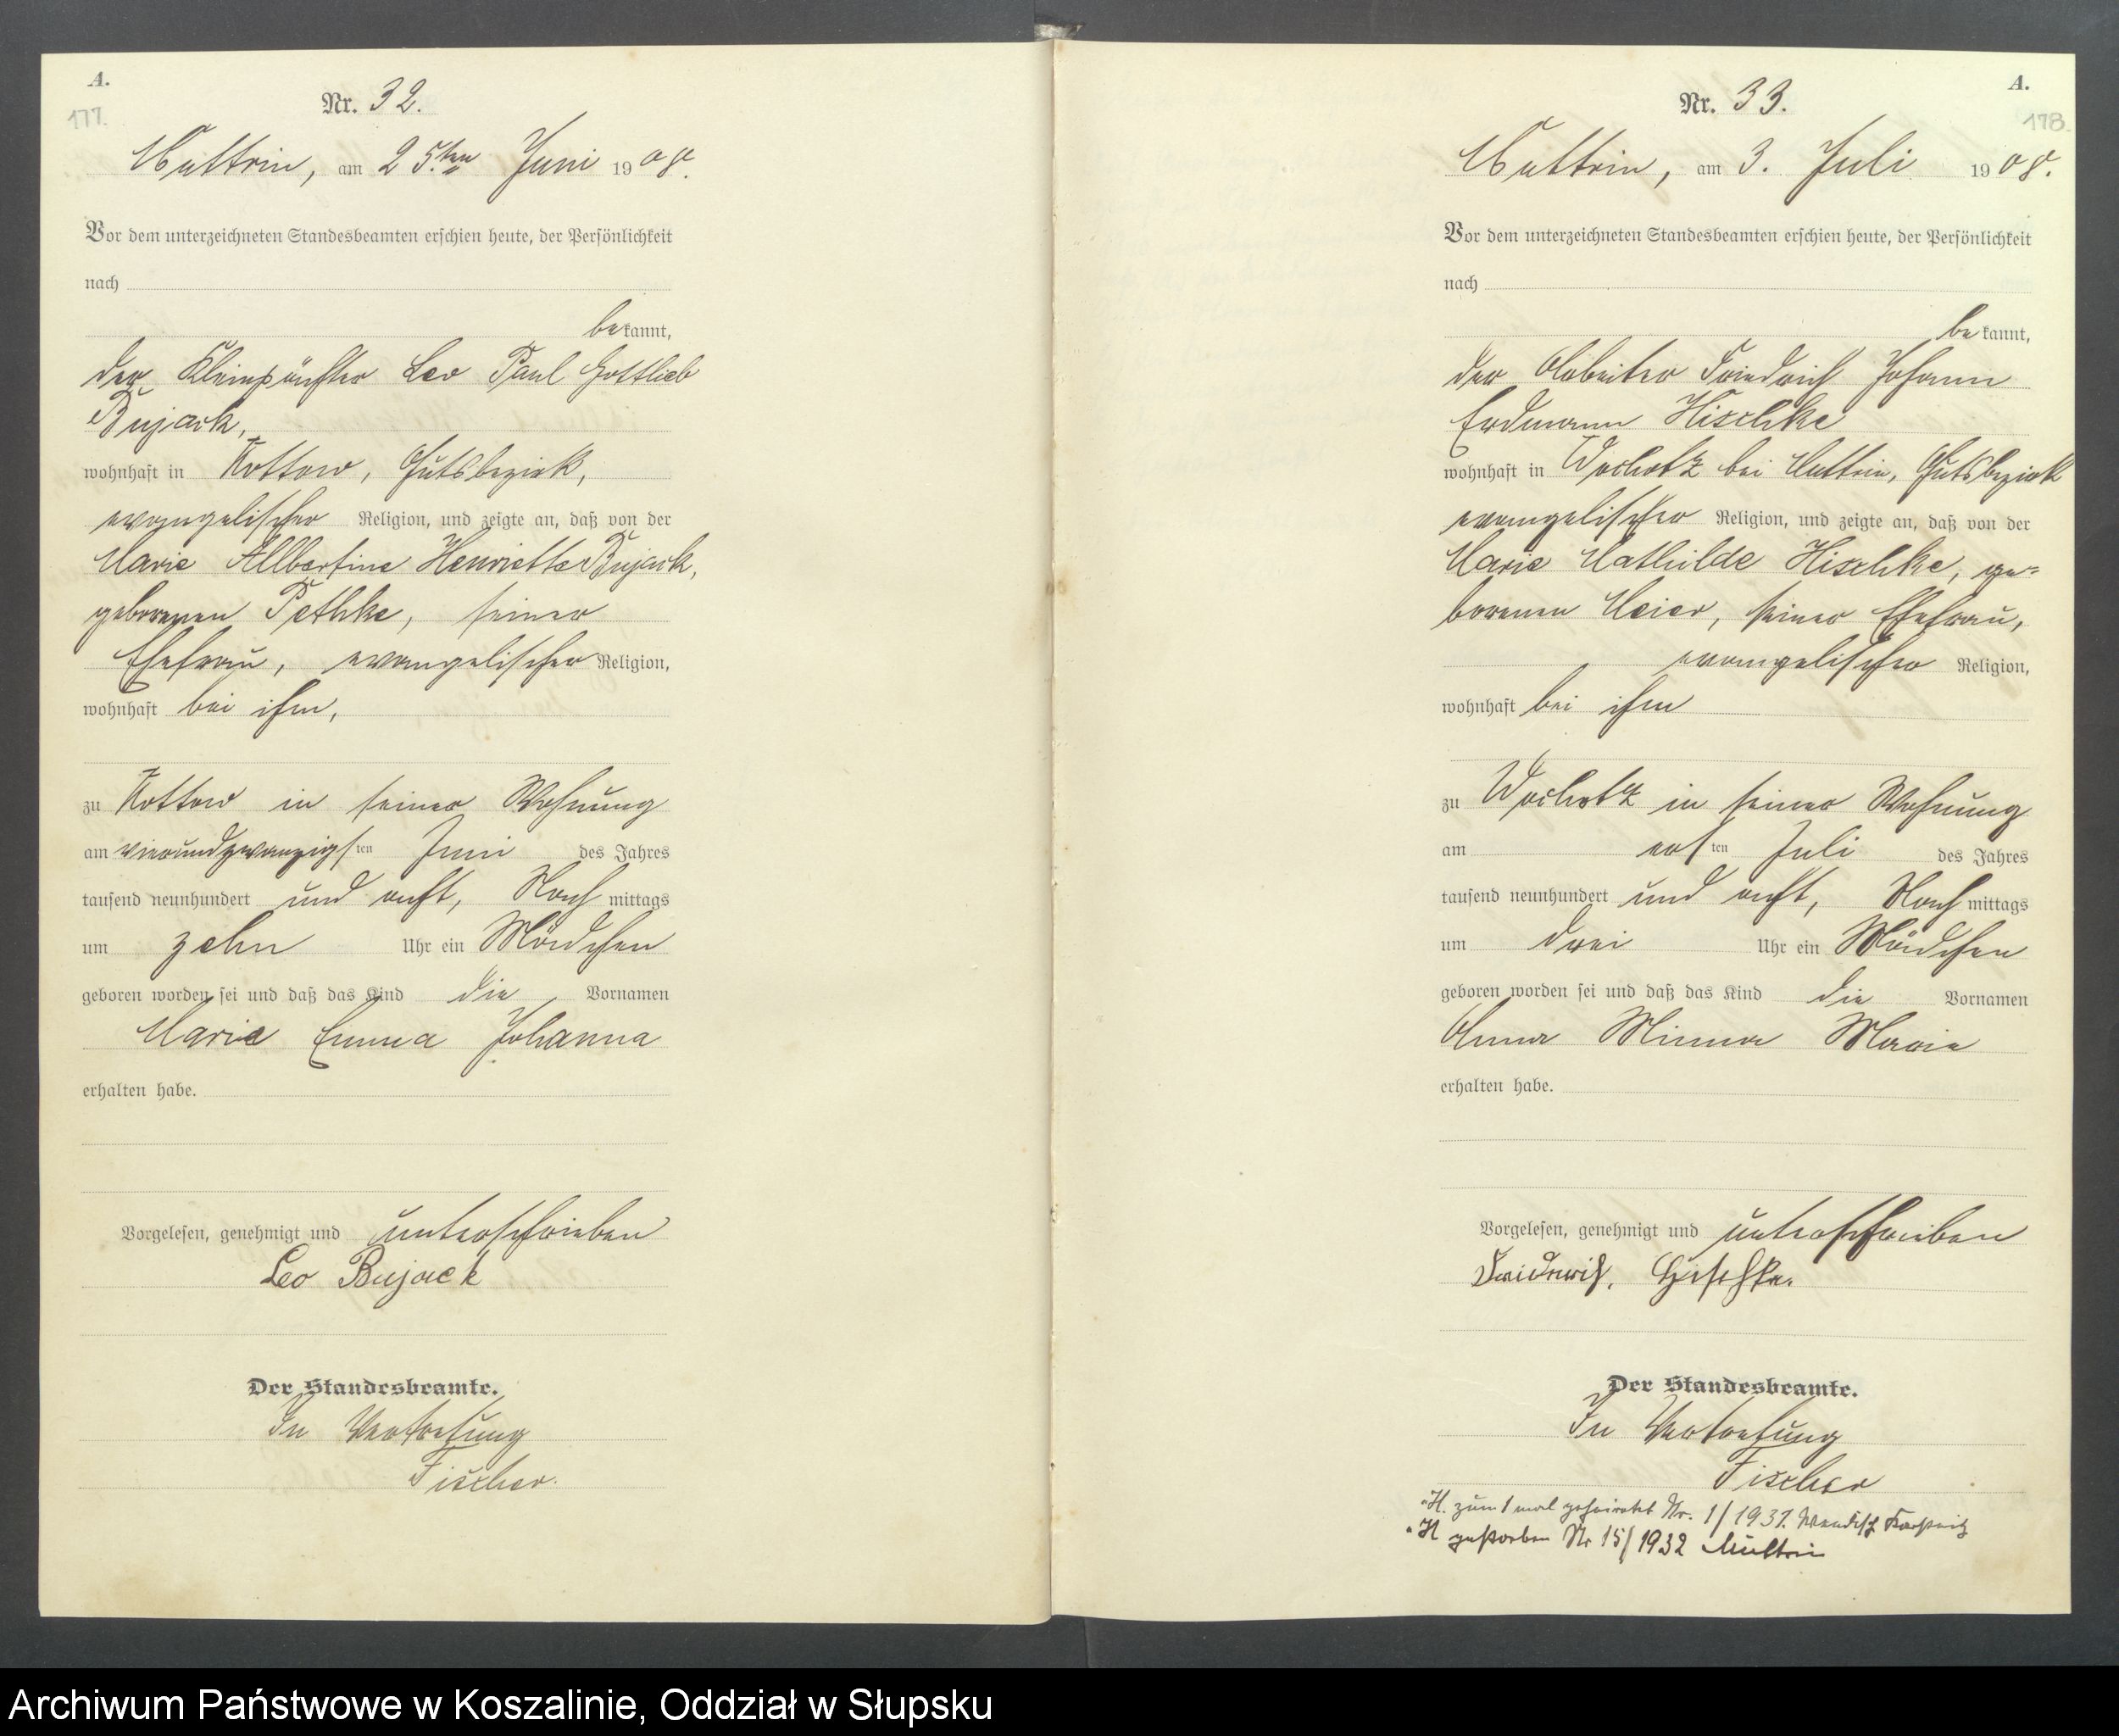 A.
177.
Nr. 32.
Muttrin, am 25ten Juni 1908.
Vor dem unterzeichneten Standesbeamten erschien heute, der Persönlichkeit
nach
bekannt,
der Kleinpächter Leo Paul Gottlieb
Bujack,
wohnhaft in Kottow, Gutsbezirk,
evangelischer Religion, und zeigte an, daß von der
Marie Allbertine Henriette Bujack,
geborenen Pethke, seiner
Ehefrau, evangelischer Religion,
wohnhaft bei ihm,
zu Kottow in seiner Wohnung
am vierundzwanzigsten Juni des Jahres
tausend neunhundert und acht, Nachmittags
um zehn Uhr ein Mädchen
geboren worden sei und daß das Kind die Vornamen
Marie Emma Johanna
erhalten habe.
Vorgelesen, genehmigt und unterschrieben
Leo Bujack
Der Standesbeamte.
In Vertretung
Fischer.
A.
178.
Nr. 33.
Muttrin, am 3. Juli 1908.
Vor dem unterzeichneten Standesbeamten erschien heute, der Persönlichkeit
nach
bekannt,
der Arbeiter Friedrich Johann
Erdmann Hischke
wohnhaft in bei Muttrin, Gutsbezirk
evangelischer Religion, und zeigte an, daß von der
Marie Mathilde Hischke, ge-
borenen Meier, seiner Ehefrau,
evangelischer Religion,
wohnhaft bei ihm
zu in seiner Wohnung
am ersten Juli des Jahres
tausend neunhundert und acht, Nachmittags
um drei Uhr ein Mädchen
geboren worden sei und daß das Kind die Vornamen
Anna Minna Marie
erhalten habe.
Vorgelesen, genehmigt und unterschrieben
Friedrich. Hischke.
Der Standesbeamte.
In Vertretung
Fischer
H. zum 1 mal geheiratet Nr. 1/1931. Wendisch
H gestorben Nr 15/1932 Muttrin
Archiwum Państwowe w Koszalinie, Oddział w Słupsku